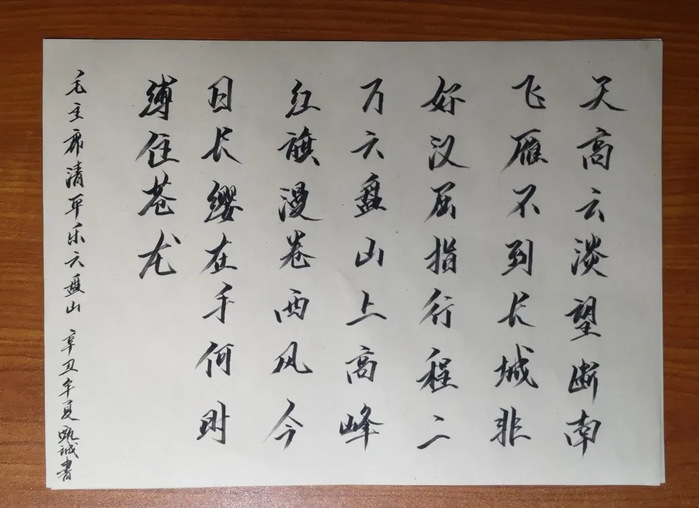 天高云淡望断南
飞雁不到长城非
好汉屈指行程二
万六盘山上高峰
红旗漫卷西风今
日长缨在手何时
缚住苍龙
毛主席清平乐六盘山 辛丑年夏 甄城书